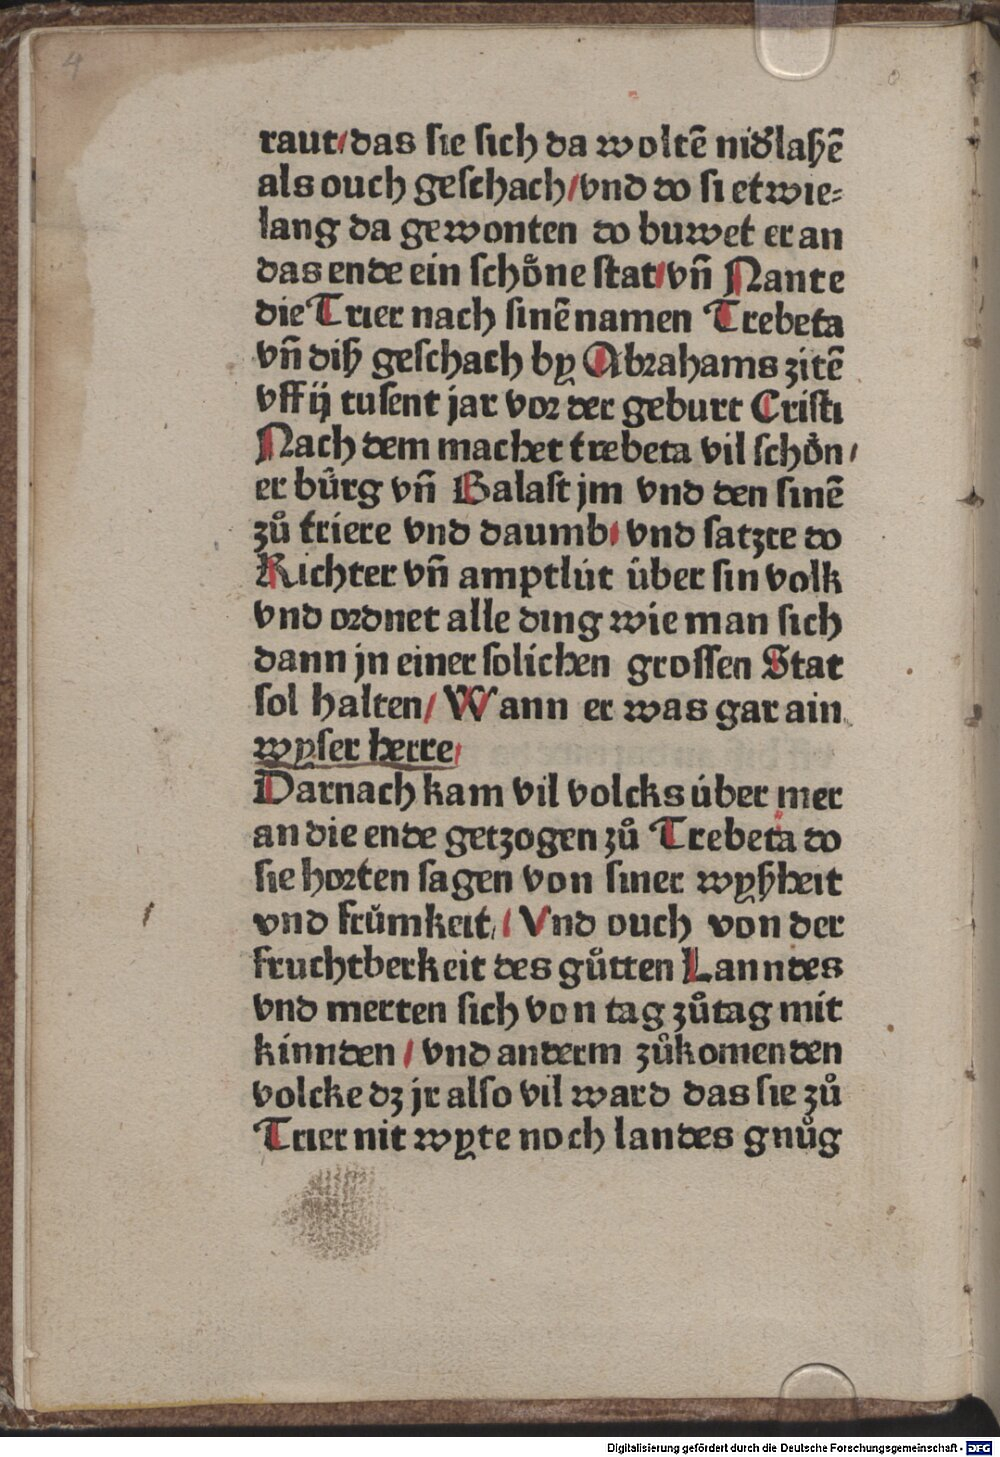 4
raut/das sie sich da woltẽ nid᷑laßẽ
als ouch geschach/vnd do si etwie⸗
lang da gewonten do buwet er an
das ende ein schoͤne stat/vñ Nante
die Trier nach sinẽ namen Trebeta
vñ diß geschach by Abrahams zitẽ
vff ij tusent jar vor der geburt Cristi
Nach dem machet trebeta vil schoͤn/
er buͤrg vñ Balast jm vnd den sinẽ
zuͦ triere vnd daumb/ vnd satzte do
Richter vñ amptlút úber sin volk
vnd ordnet alle ding wie man sich
dann jn einer solichen grossen Stat
sol halten/ Wann er was gar ain
wyser herre/
Darnach kam vil volcks úber mer
an die ende getzogen zuͦ Trebeta do
sie horten sagen von siner wyßheit
vnd fruͦmkeit/ Vnd ouch von der
fruchtberkeit des guͦtten Lanndes
vnd merten sich von tag zuͦtag mit
kinnden / vnd anderm zuͦkomenden
volcke dz jr also vil ward das sie zuͦ
Trier nit wyte noch landes gnuͦg
Digitalisierung gefördert durch die Deutsche Forschungsgemeinschaft - DFG